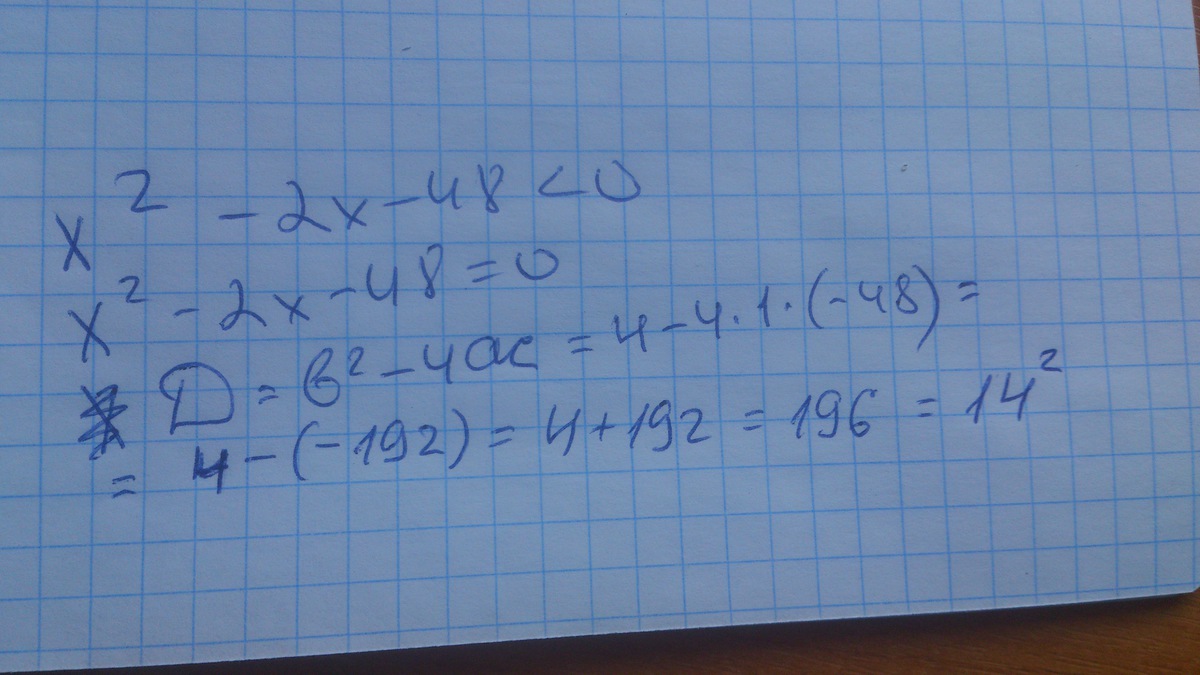 x² - 2x - 48 < 0
x² - 2x - 48 = 0
D = в² - 4ac = 4 - 4 · 1 · (-48) =
= 4 - (-192) = 4 + 192 = 196 = 14²